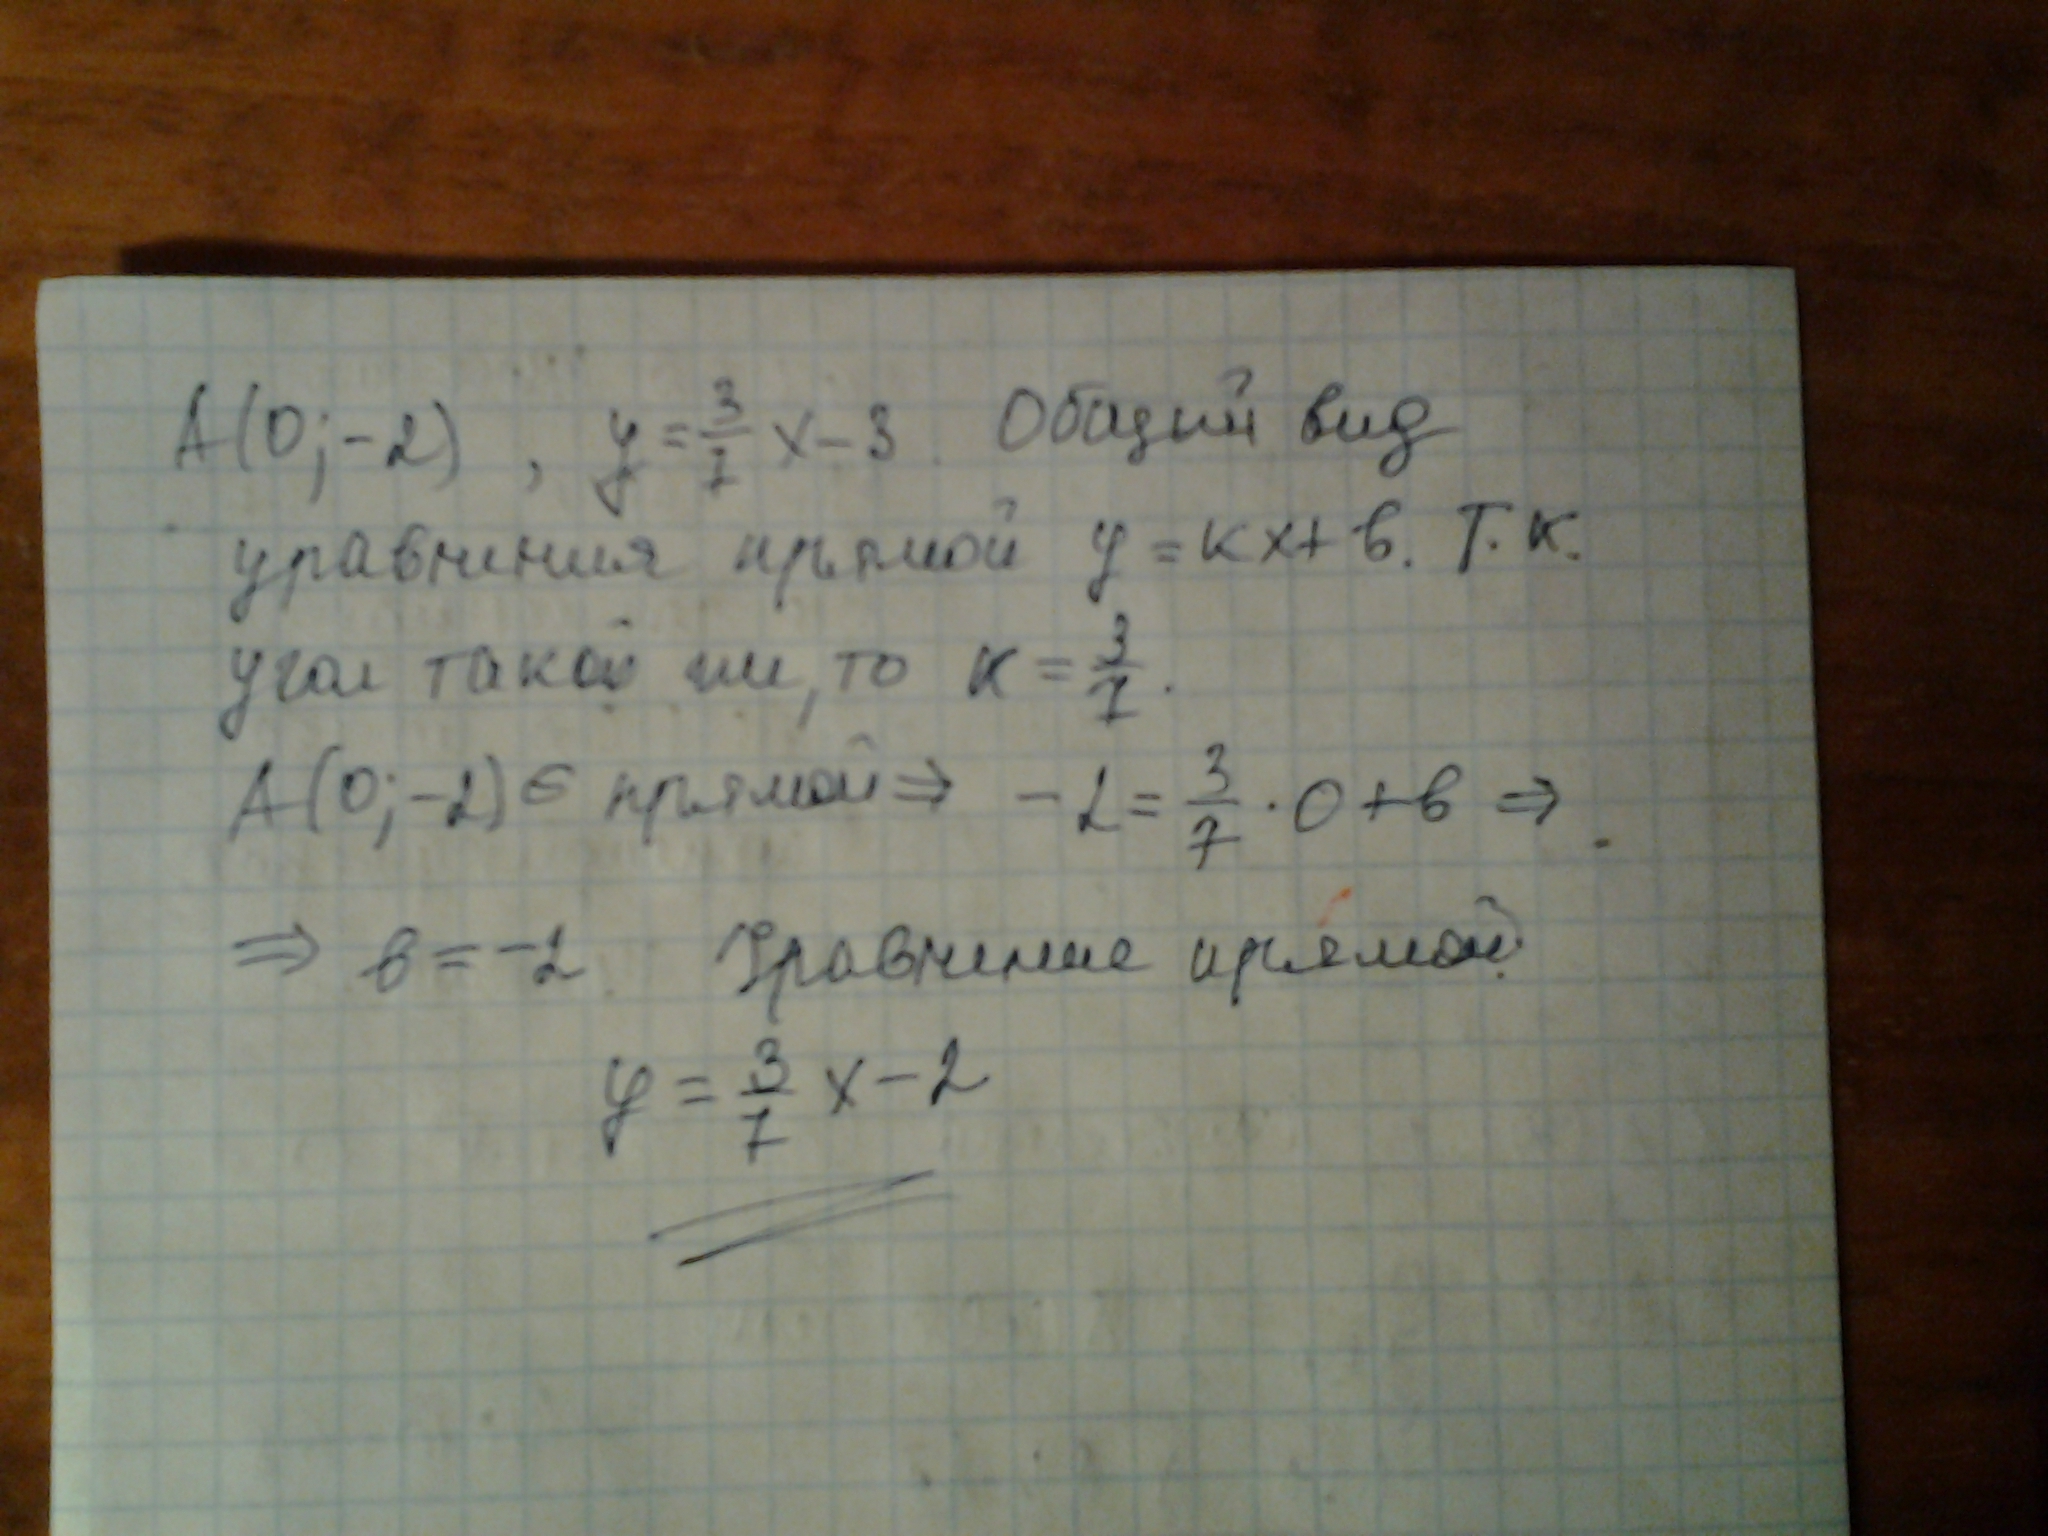 A(0;-2), y=3/7 x-3. Общий вид
уравнения прямой y=кх+в. Т.к.
угол такой же, то к=3/7.
A(0;-2)∈ прямой⇒ -2=3/7·0+в ⇒
⇒ в=-2 Уравнение прямой:
y=3/7 x-2